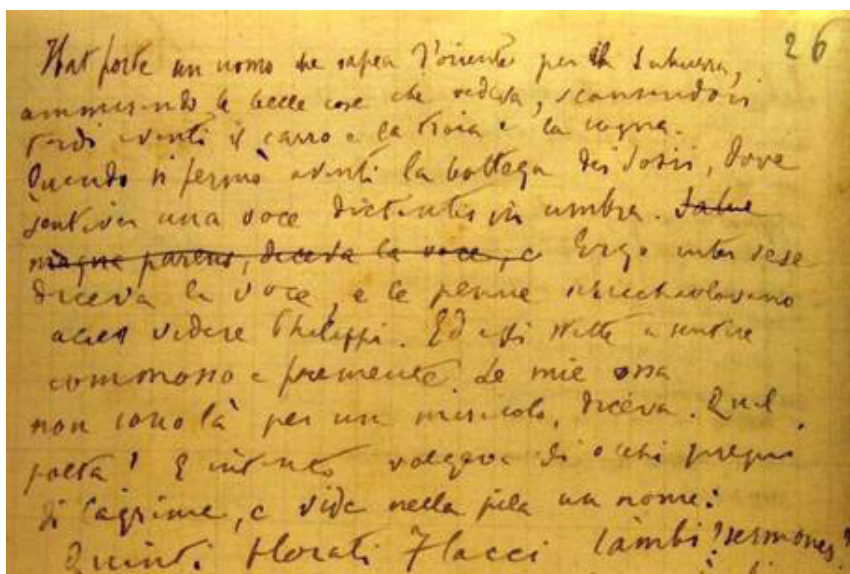 26
Ibat forte un uomo che sapea d'oriente per la Suburra,
ammirando le belle cose che vedeva, scansandosi
tardi eventi il carro e la troia e la cagna.
Quando si fermò avanti la bottega dei Sosii, dove
sentiva una voce dictantis in umbra. Salve
magna parens, diceva la voce, e Ergo inter sese
diceva la voce, e le penne
acies videre Philippi. Ed egli stette a sentire
commosso e fremente. Le mie ossa
non sono là per un miracolo, diceva. Qual
poeta! E intanto volgeva gli occhi pregni
di lagrime, e vide nella pila un nome:
Quinti Horati Flacci Iambi? sermones?